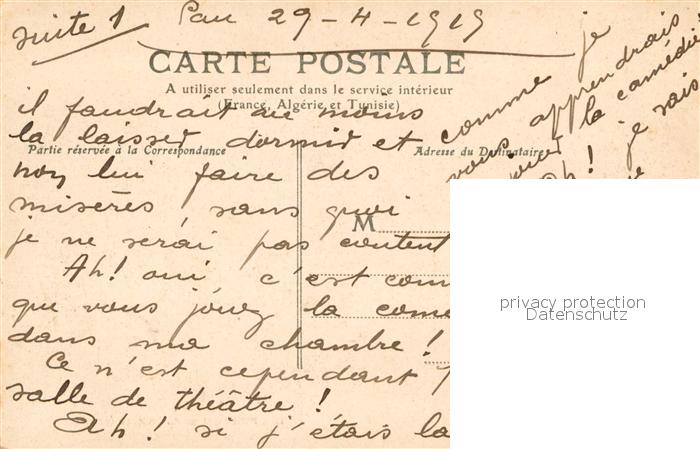 suite 1 Pau 29-4-1919
CARTE POSTALE
A utiliser seulement dans le service intérieur
(France, Algérie et Tunisie)
il faudrait au moins
la laisser dormir et
Partie réservée à la Correspondance
Adresse du Destinataire
non lui faire des
misères, sans quoi
M
je ne serai pas content
Ah! oui c'est com
que vous jouez la come
dans ma chambre!
Ce n'est cependant
salle de théâtre!
Ah! si j'étais la
comme je
vous apprendrais
jouer la comédie
Ah! je sais
privacy protection
Datenschutz